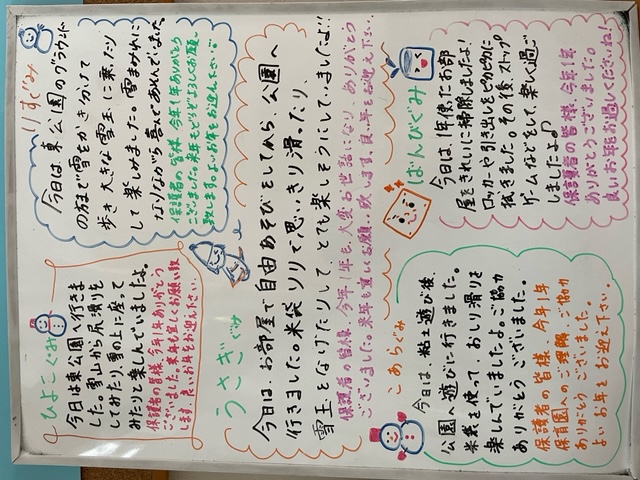 ひよこぐみ
今日は東公園へ行きま
した。雪山から尻滑りを
してみたり、雪の上に座って
みたりと楽しんでいましたよ。
保護者の皆様、今年1年ありがとう
ございました。来年も宜しくお願い致
します。良いお年をお迎えください。
りすぐみ
今日は、東公園のグラウンド
の方まで雪をかき分けて
歩き、大きな雪玉に乗ったり
して楽しみました。雪まみれに
なりながら喜んであそんでいました。
保護者の皆様、今年1年ありがとう
ございました。来年もどうぞよろしくお願い
致します。よいお年をお迎え下さい。
うさぎぐみ
今日は、お部屋で自由あそびをしてから、公園へ
行きました。米袋ソリで思いきり滑ったり、
雪玉をなげたりして、とても楽しそうにしていましたよ!!
保護者の皆様、今年1年も、大変お世話になり、ありがとう
ございました。来年も宜しくお願い致します。良いお年をお迎え下さい。
こあらぐみ
今日は、粘土遊び後、
公園へ遊びに行きました。
米袋を使って、おしり滑りを
楽しんでいましたよ。ご協力
ありがとうございました。
保護者の皆様、今年1年
保育園へのご理解、ご協力
ありがとうございました。
よいお年をお迎え下さい。
ばんびぐみ
今日は、1年使ったお部
屋をきれいに掃除しましたよ!
ロッカーや引き出しをピカピカに
拭きました。その後、ストップ
ゲームなどをして、楽しく過ご
しましたよ♪
保護者の皆様、今年1年
ありがとうございました。
良いお年をお過ごしくださいね。